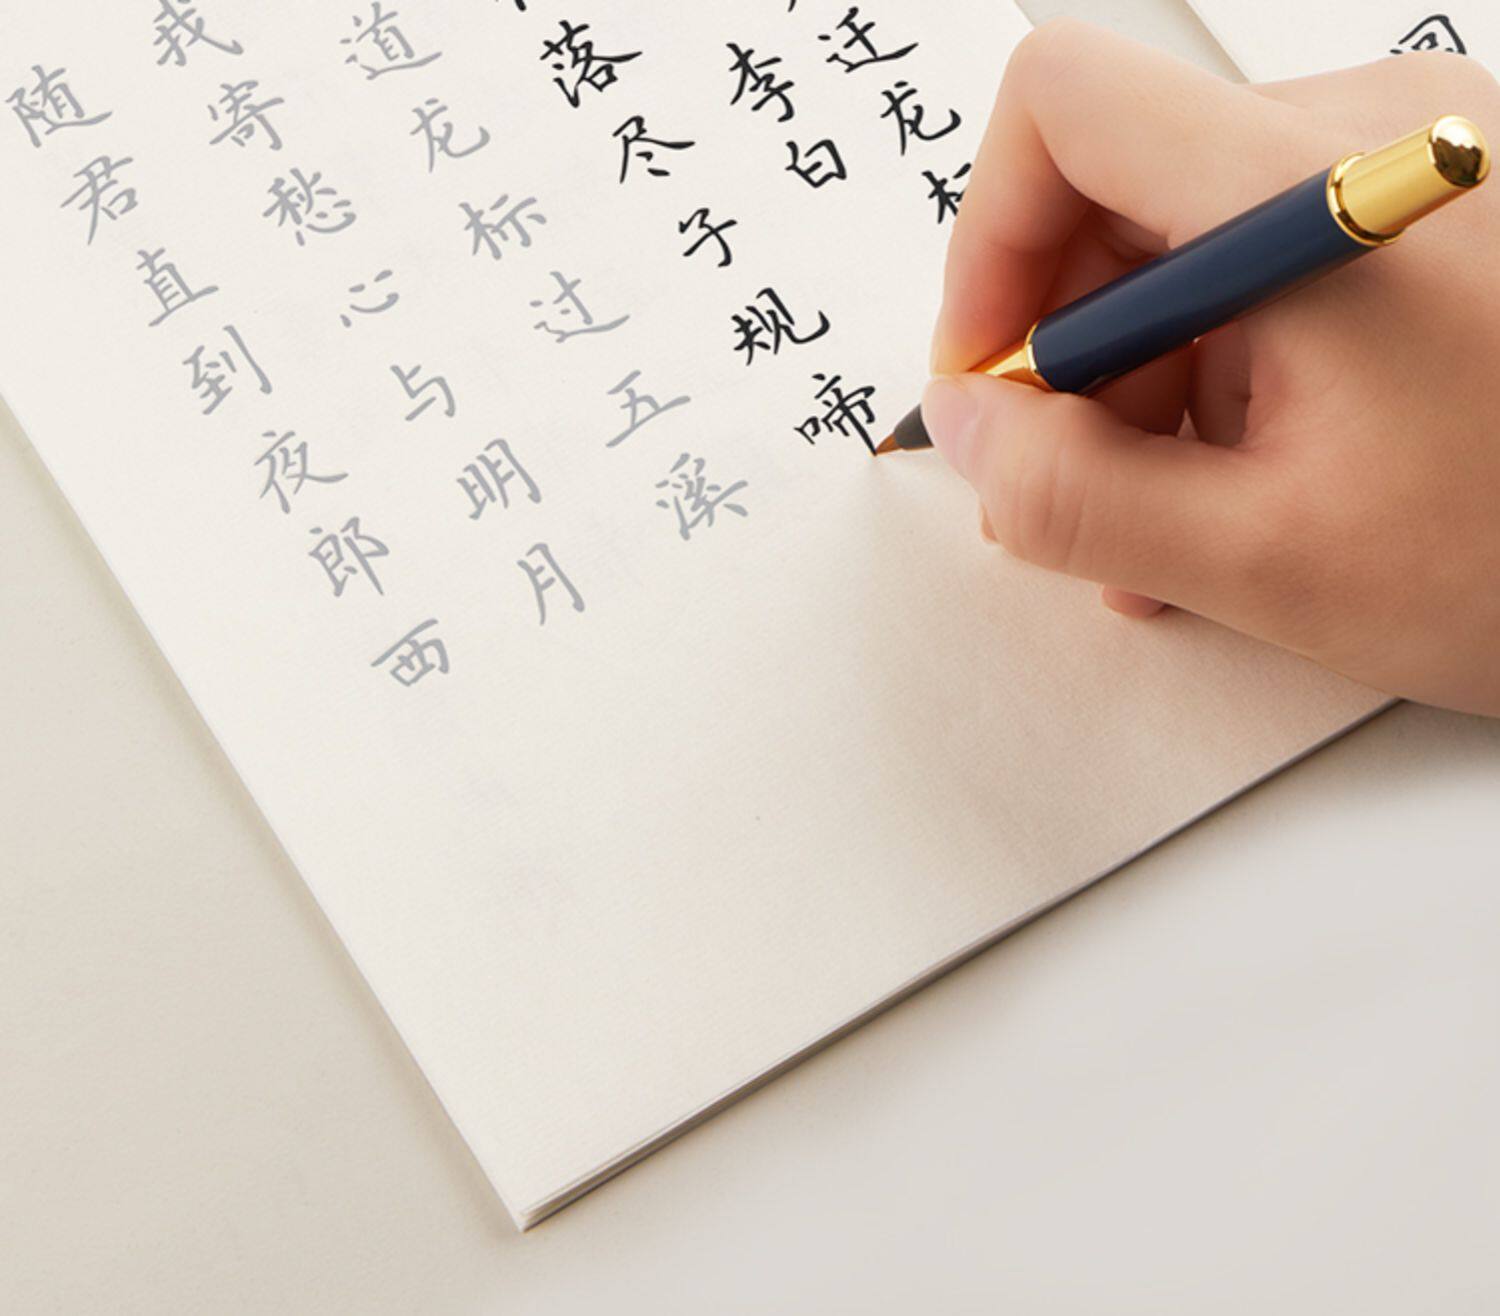 迁龙标
李白
落尽子规啼
道龙标过五溪
我寄愁心与明月
随君直到夜郎西